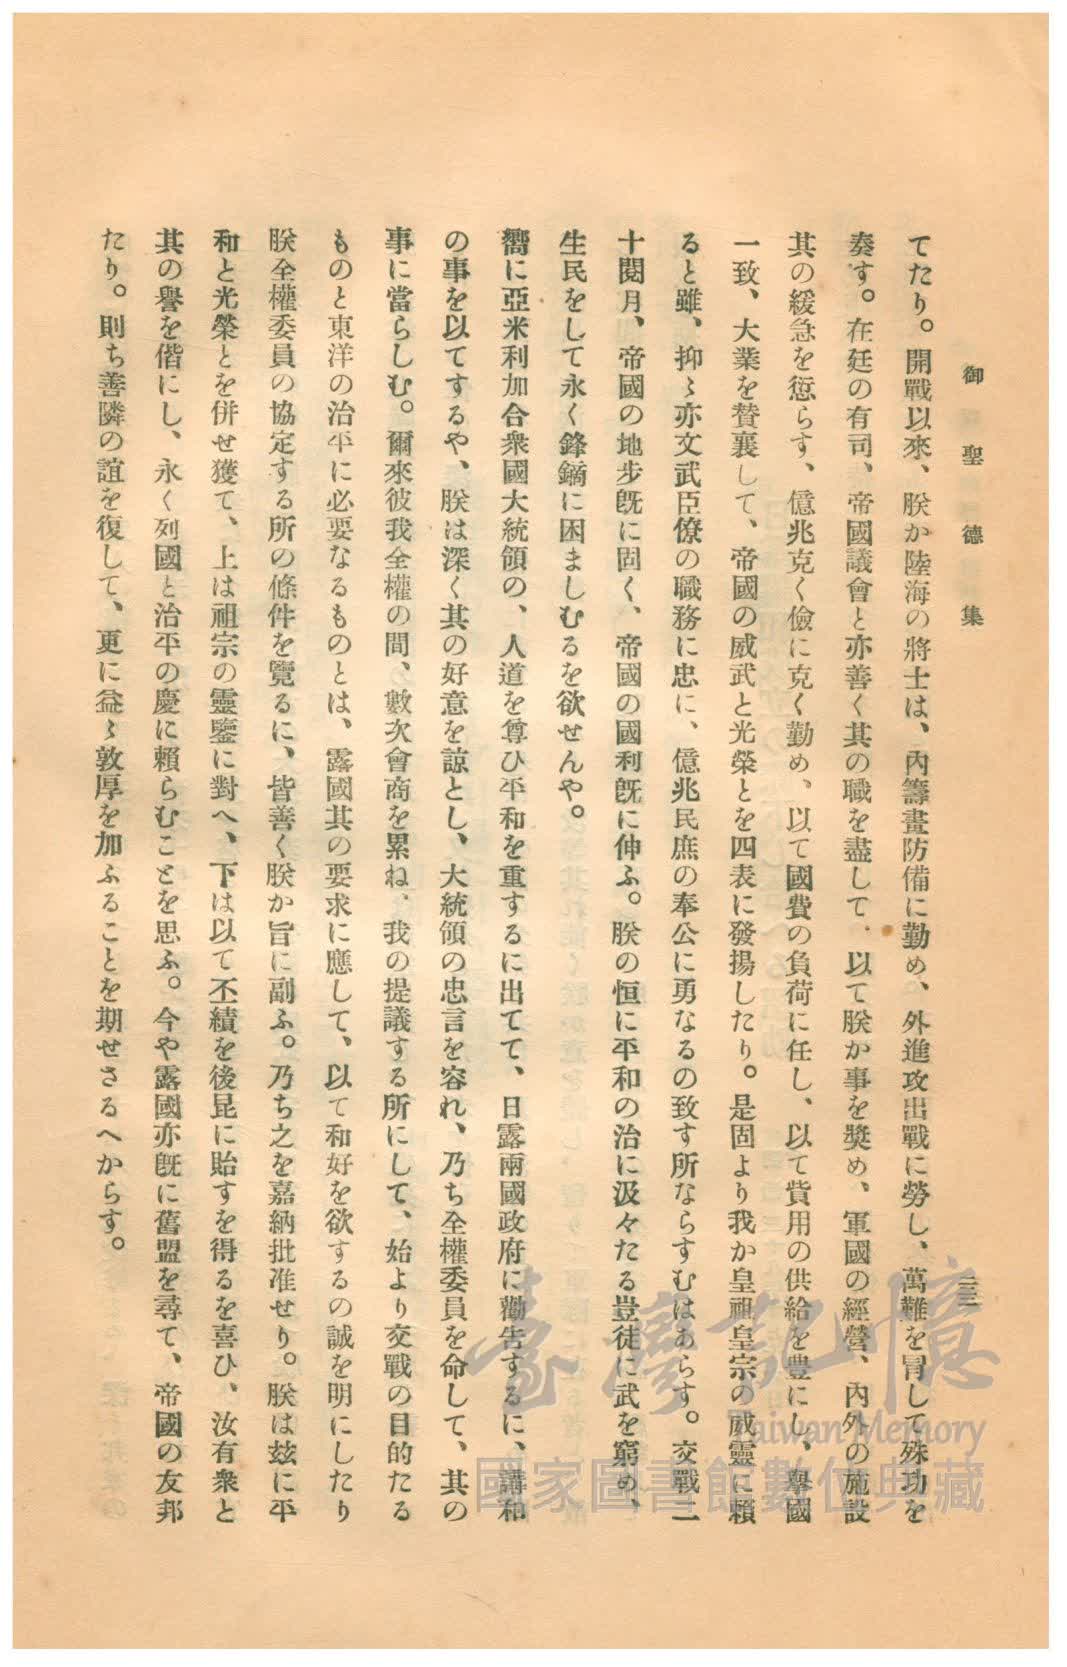 御聖德集
三二
てたり。開戰以來、朕か陸海の將士は、內籌畫防備に勤め、外進攻出戰に勞し、萬難を冒して殊功を
奏す。在廷の有司、帝國議會と亦善く其の職を盡して、以て朕か事を奬め、軍國の經營、內外の施設
其の緩急を愆らす、億兆克く儉に克く勤め、以て國費の負荷に任し、以て貲用の供給を豊にし、擧國
一致、大業を贊襄して、帝國の威武と光榮とを四表に發揚したり。是固より我か皇祖皇宗の威靈に賴
ると雖、抑〻亦文武臣僚の職務に忠に、億兆民庶の奉公に勇なるの致す所ならすむはあらす。交戰二
十閱月、帝國の地步旣に固く、帝國の國利旣に伸ふ。朕の恒に平和の治に汲々たる豈徒に武を窮め、
生民をして永く鋒鏑に困ましむるを欲せんや。
嚮に亞米利加合衆國大統領の、人道を尊ひ平和を重するに出てて、日露兩國政府に勸告するに、講和
の事を以てするや、朕は深く其の好意を諒とし、大統領の忠言を容れ、乃ち全權委員を命して、其の
事に當らしむ。爾來彼我全權の間、數次會商を累ね、我の提議する所にして、始より交戰の目的たる
ものと東洋の治平に必要なるものとは、露國其の要求に應して、以て和好を欲するの誠を明にしたり
朕全權委員の協定する所の條件を覽るに、皆善く朕か旨に副ふ。乃ち之を嘉納批准せり。朕は玆に平
和と光榮とを併せ獲て、上は祖宗の靈鑒に對へ、下は以て丕績を後昆に貽すを得るを喜ひ、汝有衆と
其の譽を偕にし、永く列國と治平の慶に賴らむことを思ふ。今や露國亦旣に舊盟を尋て、帝國の友邦
たり。則ち善隣の誼を復して、更に益〻敦厚を加ふることを期せさるへからす。
臺灣記憶
Taiwan Memory
國家圖書館數位典藏